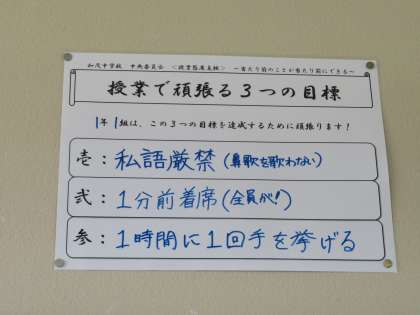 加茂中学校 中央委員会 <授業態度点検> ~当たり前のことが当たり前にできる~
授業で頑張る3つの目標
1年 1組は、この3つの目標を達成するために頑張ります!
壱:私語厳禁(鼻歌を歌わない)
弐:1分前着席(全員が!)
参:1時間に1回手を挙げる